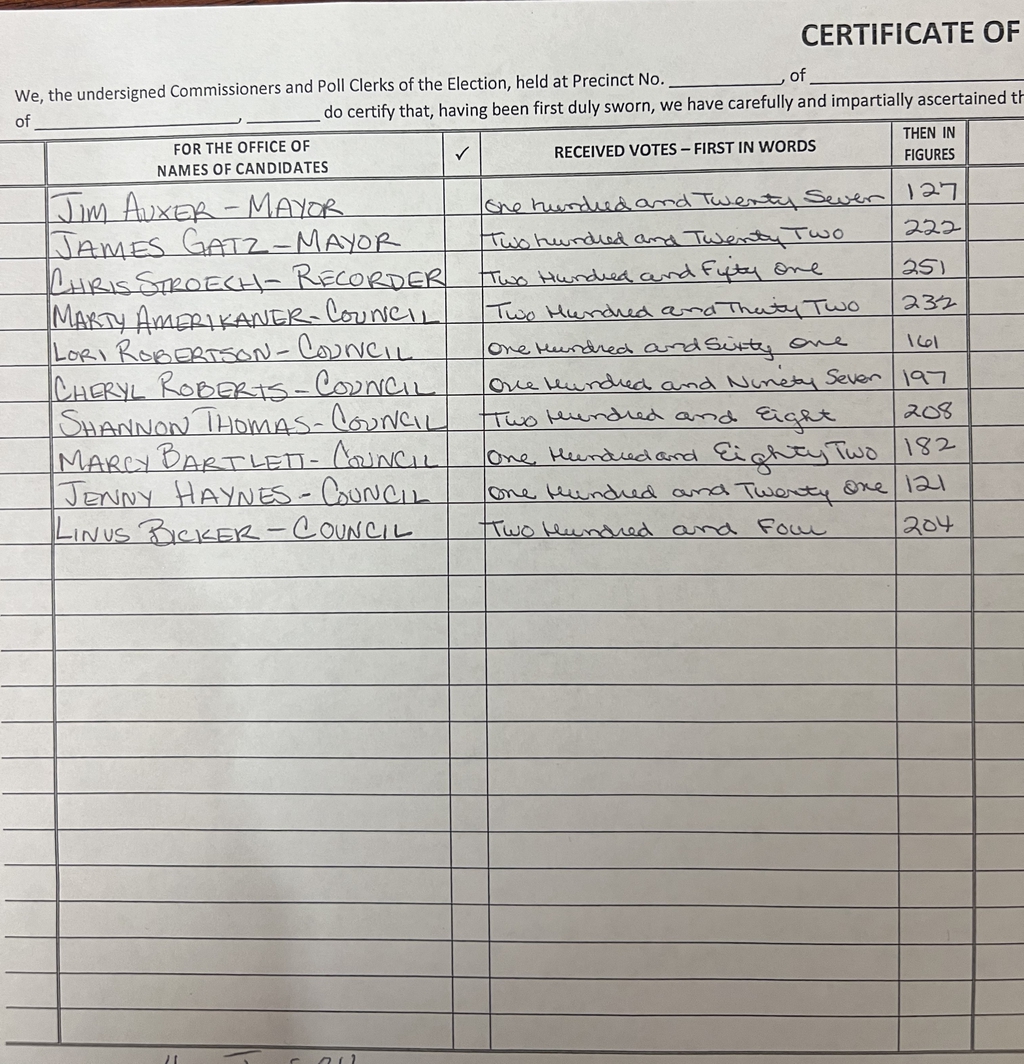 CERTIFICATE OF
We, the undersigned Commissioners and Poll Clerks of the Election, held at Precinct No. ____________, of
of ____________, ________ do certify that, having been first duly sworn, we have carefully and impartially ascertained th
FOR THE OFFICE OF NAMES OF CANDIDATES ✓ RECEIVED VOTES – FIRST IN WORDS THEN IN FIGURES
JIM AUXER – MAYOR One hundred and Twenty Seven 127
JAMES GATZ – MAYOR Two hundred and Twenty Two 222
CHRIS STROECH – RECORDER Two Hundred and Fifty One 251
MARTY AMERIKANER – COUNCIL Two Hundred and Thirty Two 232
LORI ROBERTSON – COUNCIL One Hundred and Sixty One 161
CHERYL ROBERTS – COUNCIL One Hundred and Ninety Seven 197
SHANNON THOMAS – COUNCIL Two Hundred and Eight 208
MARCY BARTLETT – COUNCIL One Hundred and Eighty Two 182
JENNY HAYNES – COUNCIL One Hundred and Twenty One 121
LINUS BICKER – COUNCIL Two Hundred and Four 204